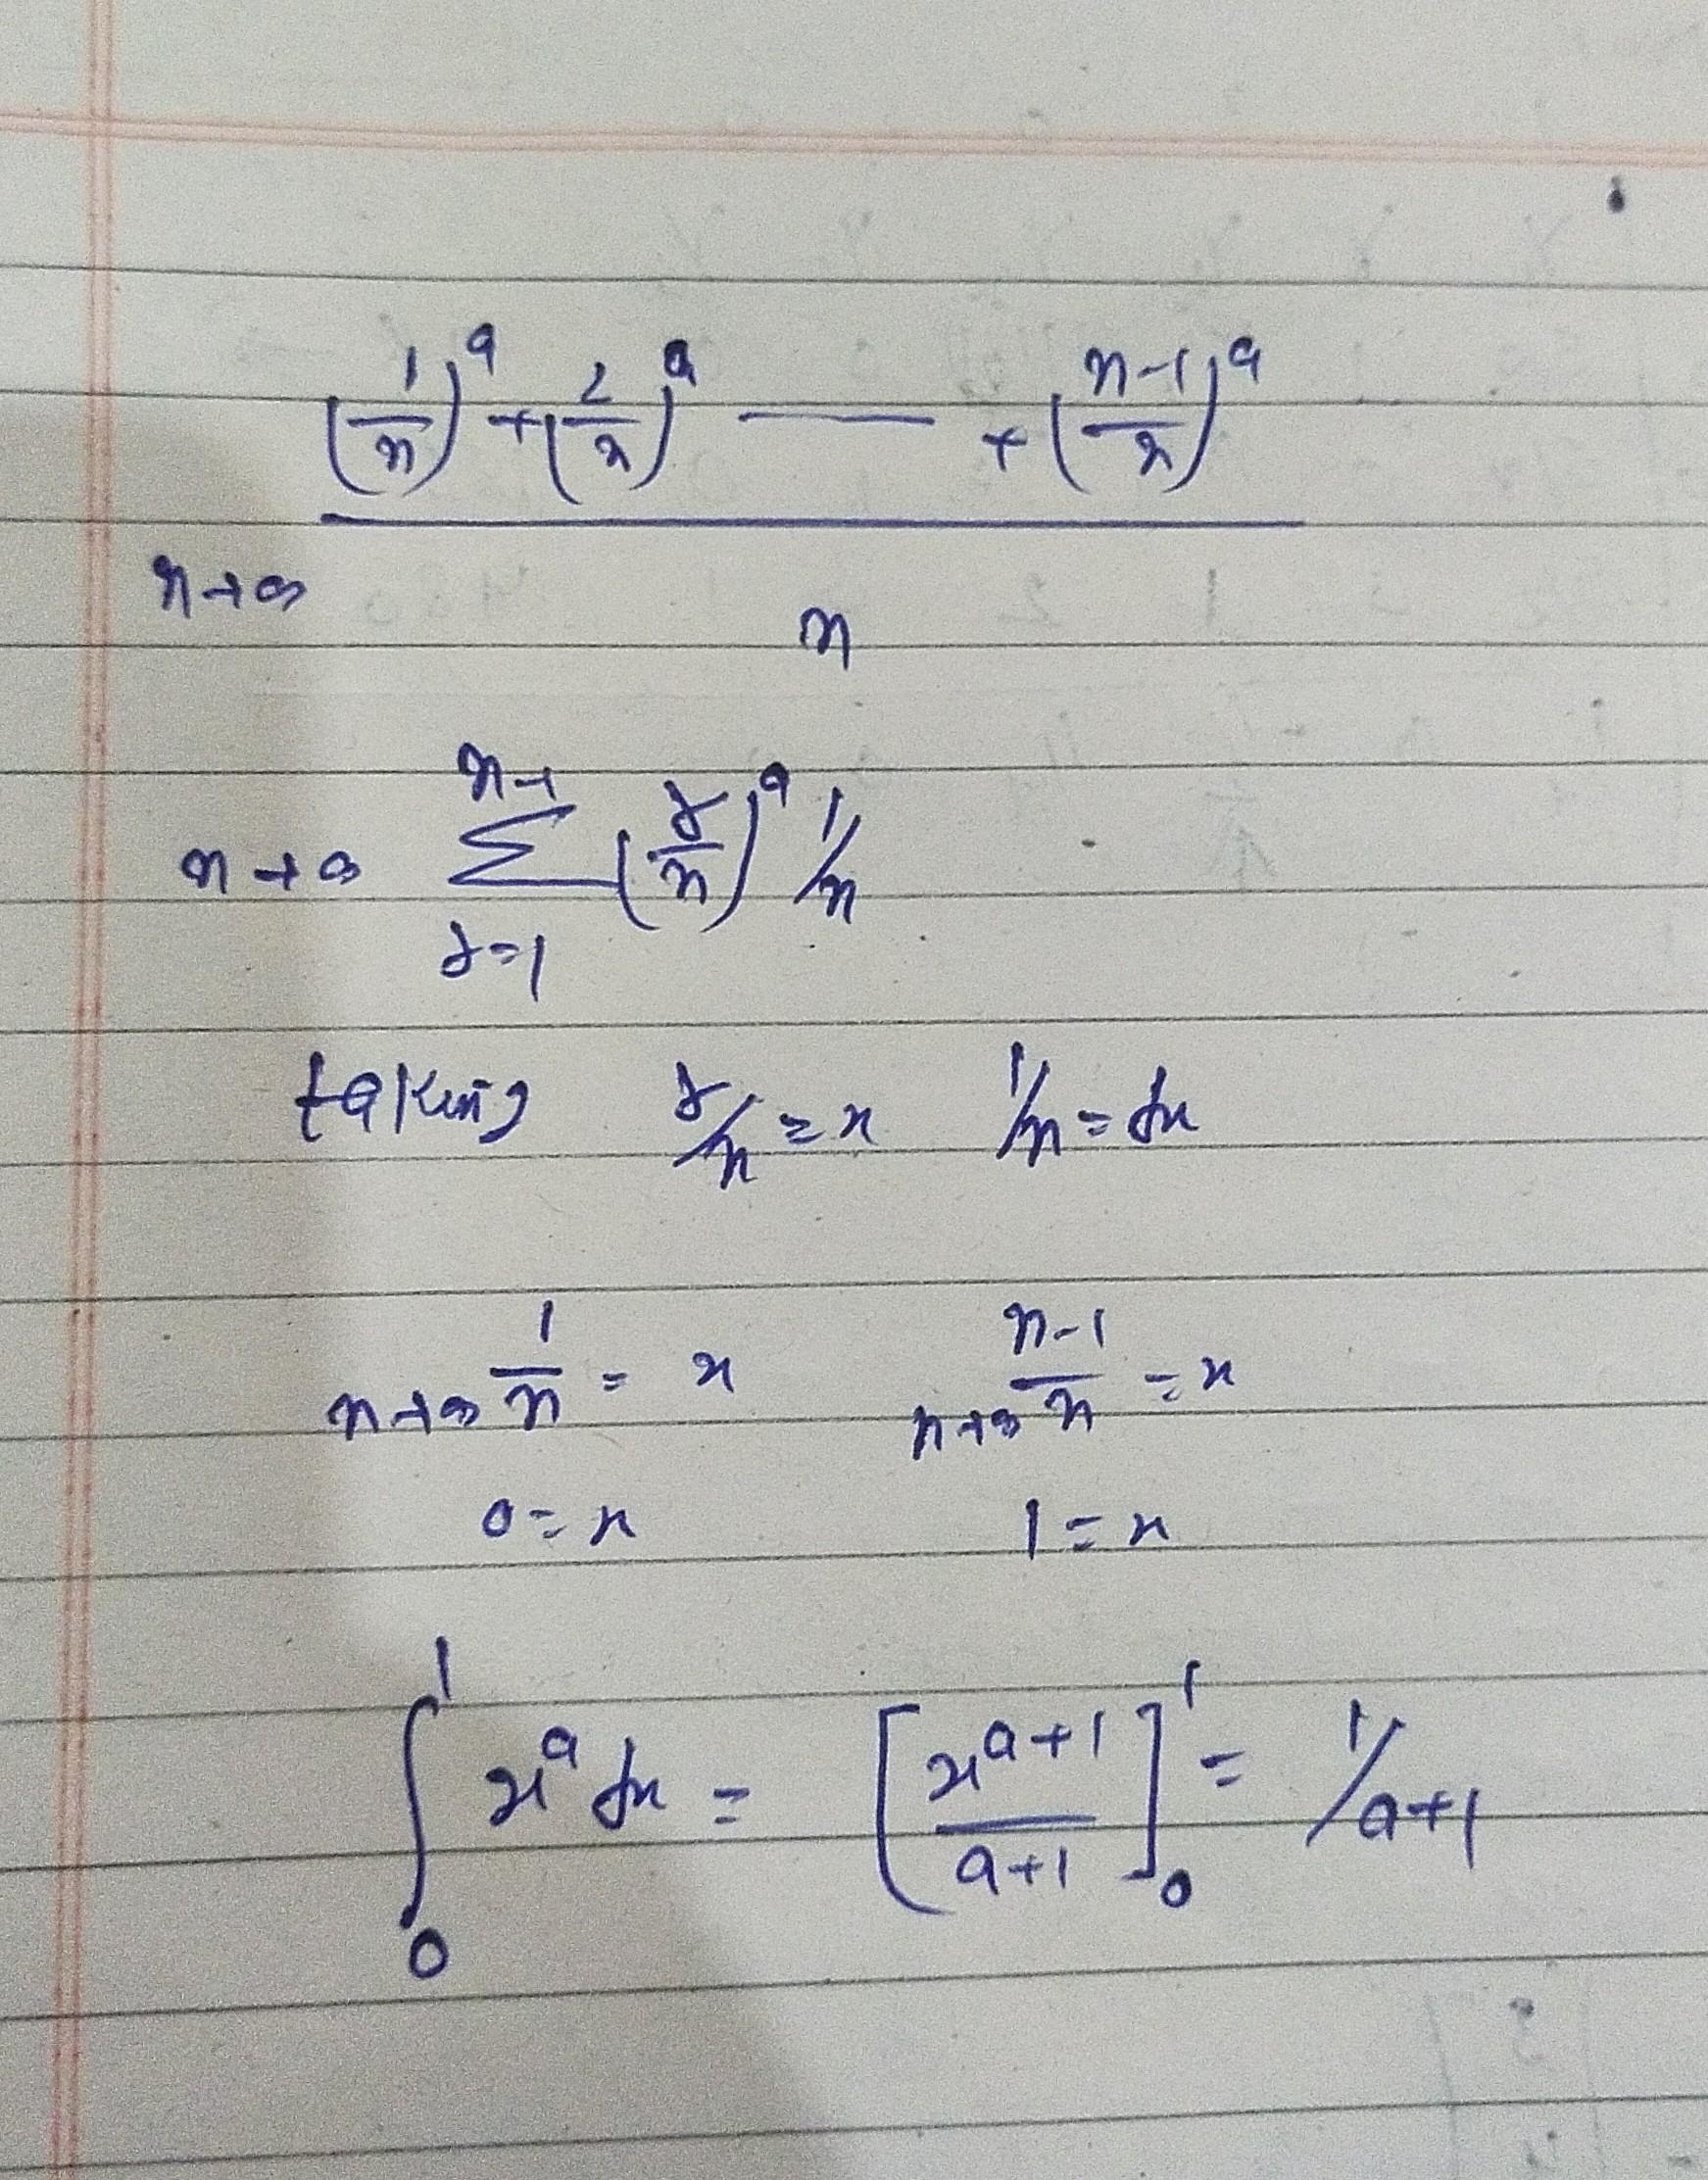 (1/n)^a + (2/n)^a — + (n-1/n)^a
n→∞
n
n→∞ n-1 Σ r=1 (r/n)^a 1/n
taking r/n = x 1/n = dx
n→∞ 1/n = x n→∞ n-1/n = x
0 = x 1 = x
∫₀¹ x^a dx = [x^(a+1)/a+1]₀¹ = 1/a+1